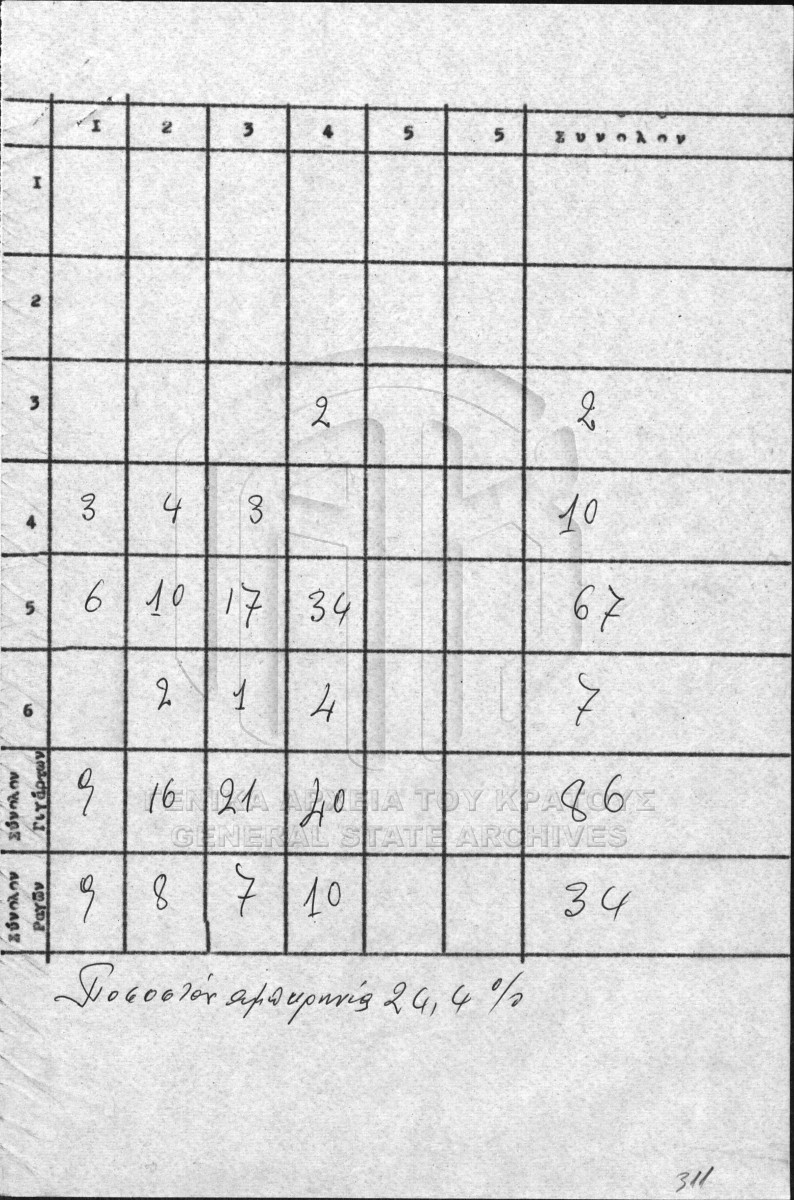 Ι 2 3 4 5 5 Συνολον
Ι
2
3 2 2
4 3 4 3 10
5 6 10 17 34 67
6 2 1 4 7
Σύνολον Γιγάρτων 9 16 21 40 86
ΓΕΝΙΚΑ ΑΡΧΕΙΑ ΤΟΥ ΚΡΑΤΟΥΣ
GENERAL STATE ARCHIVES
Σύνολον Ραγών 9 8 7 10 34
Ποσοστόν 24,4 %
311